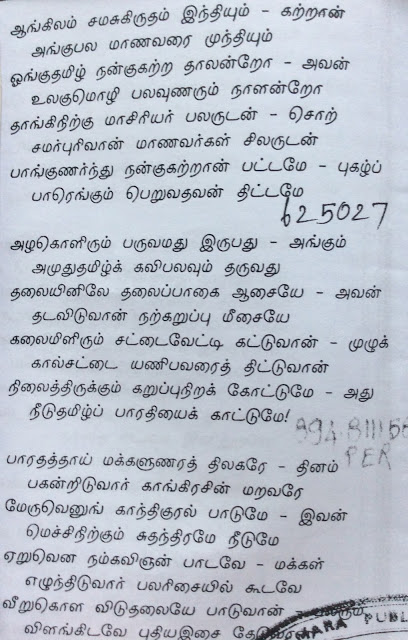 ஆங்கிலம் சமசுகிருதம் இந்தியும் – கற்றான்
அங்குபல மாணவரை முந்தியும்
ஓங்குதமிழ் நன்குகற்ற தாலன்றோ – அவன்
உலகுமொழி பலவுணரும் நாளன்றோ
தாங்கிநிற்கு மாசிரியர் பலருடன் – சொற்
சமர்புரிவான் மாணவர்கள் சிலருடன்
பாங்குணர்ந்து நன்குகற்றான் பட்டமே – புகழ்ப்
பாரெங்கும் பெறுவதவன் திட்டமே
625027
அழகொளிரும் பருவமது இருபது – அங்கும்
அமுதுதமிழ்க் கவிபலவும் தருவது
தலையினிலே தலைப்பாகை ஆசையே – அவன்
தடவிடுவான் நற்கறுப்பு மீசையே
கலைமிளிரும் சட்டைவேட்டி கட்டுவான் – முழுக்
கால்சட்டை யணிபவரைத் திட்டுவான்
நிலைத்திருக்கும் கறுப்புநிறக் கோட்டுமே – அது
நீடுதமிழ்ப் பாரதியைக் காட்டுமே!
PER
பாரதத்தாய் மக்களுணரத் திலகரே – தினம்
பகன்றிடுவார் காங்கிரசின் மறவரே
மேருவெனுங் காந்திகுரல் பாடுமே – இவன்
மெச்சிநிற்கும் சுதந்திரமே நீடுமே
ஏறுவென நம்கவிஞன் பாடவே – மக்கள்
எழுந்திடுவார் பலரிசையில் கூடவே
வீறுகொள விடுதலையே பாடுவான் –
விளங்கிடவே புதியஇசை
PUBL